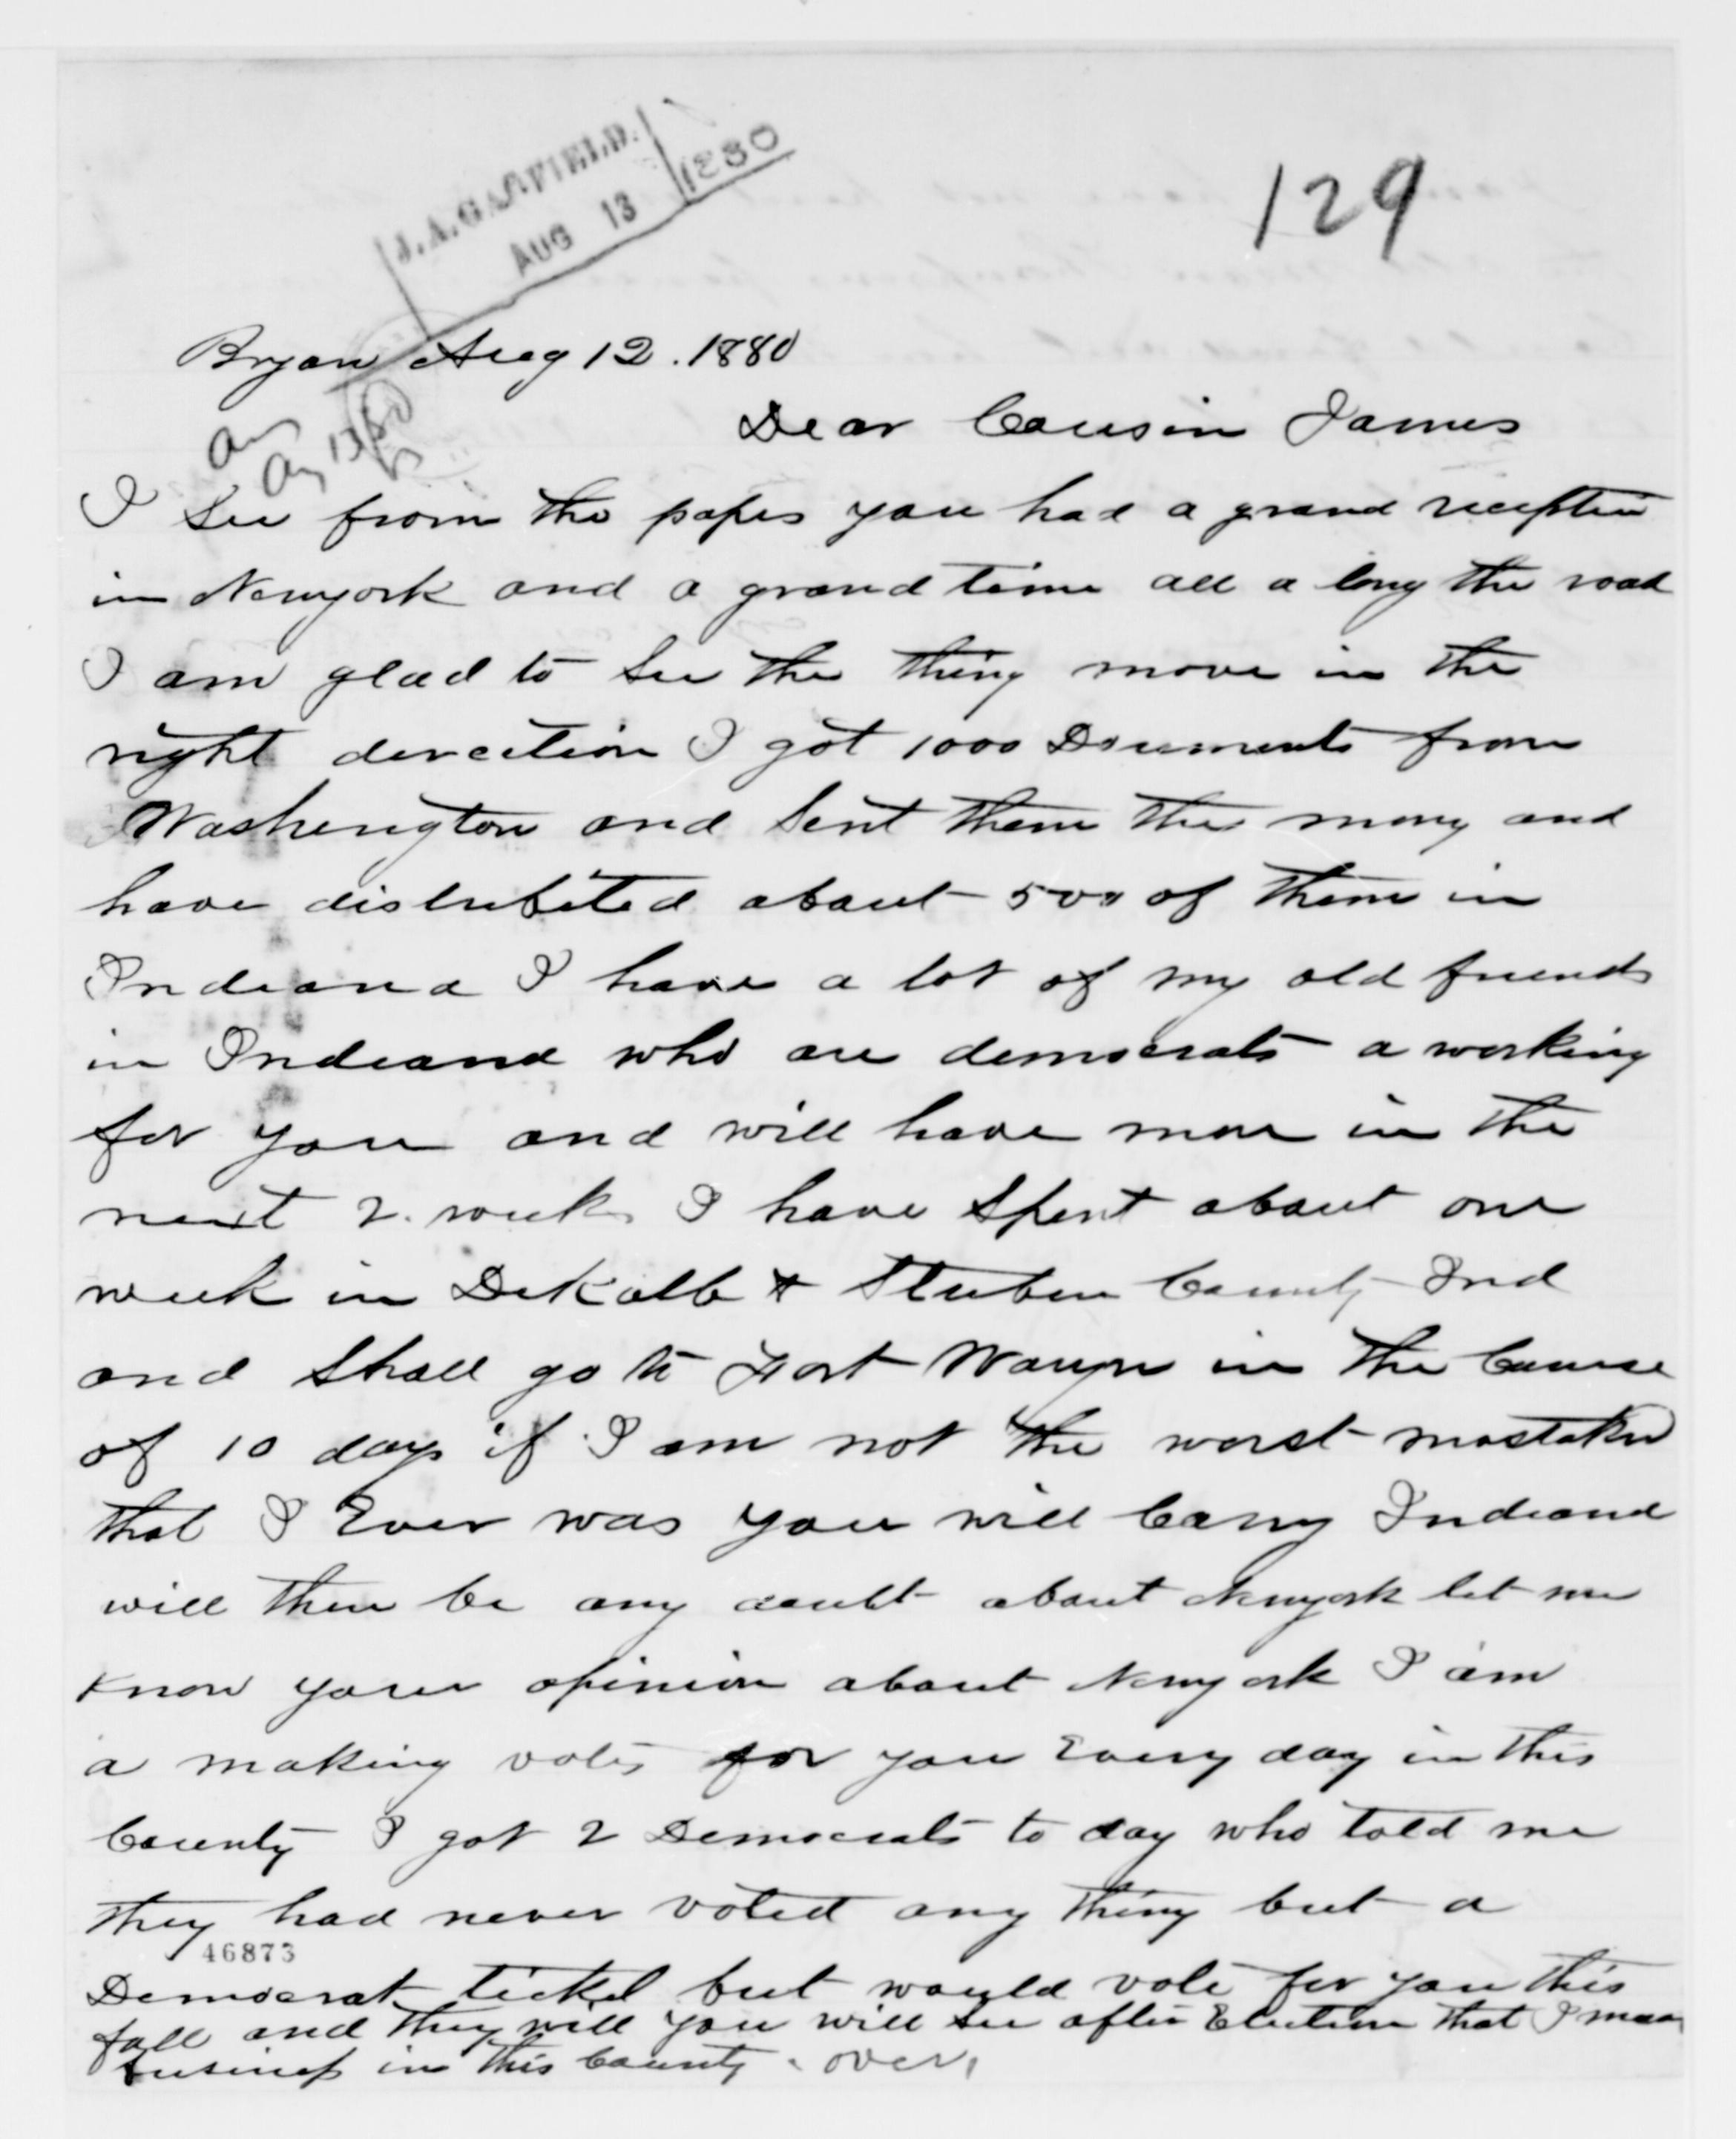 J.A. GARFIELD.
AUG 13 1880
129
Bryan Aug 12. 1880
Ans
Aug 13/80
Dear Cousin James
I See from the papes you had a grand reception
in Newyork and a grand time all a long the road
I am glad to See the thing move in the
right direction I got 1000 Documents from
Washington and Sent them the mony and
have distributed about 500 of them in
Indiana I have a lot of my old friends
in Indiana who are democrats a working
for you and will have more in the
next 2 weeks I have Spent about one
week in DeKalb & Steuben County Ind
and Shall go to Fort Wayn in the Course
of 10 days if I am not the worst mastaken
that I Ever was you will Carry Indiana
will there be any doubt about Newyork let me
know your opinion about Newyork I am
a making votes for you Every day in this
County I got 2 Democrats to day who told me
they had never voted any thing but a
46873
Democrat ticket but would vote for you this
fall and they will you will See after Election that I mean
business in this County. over,